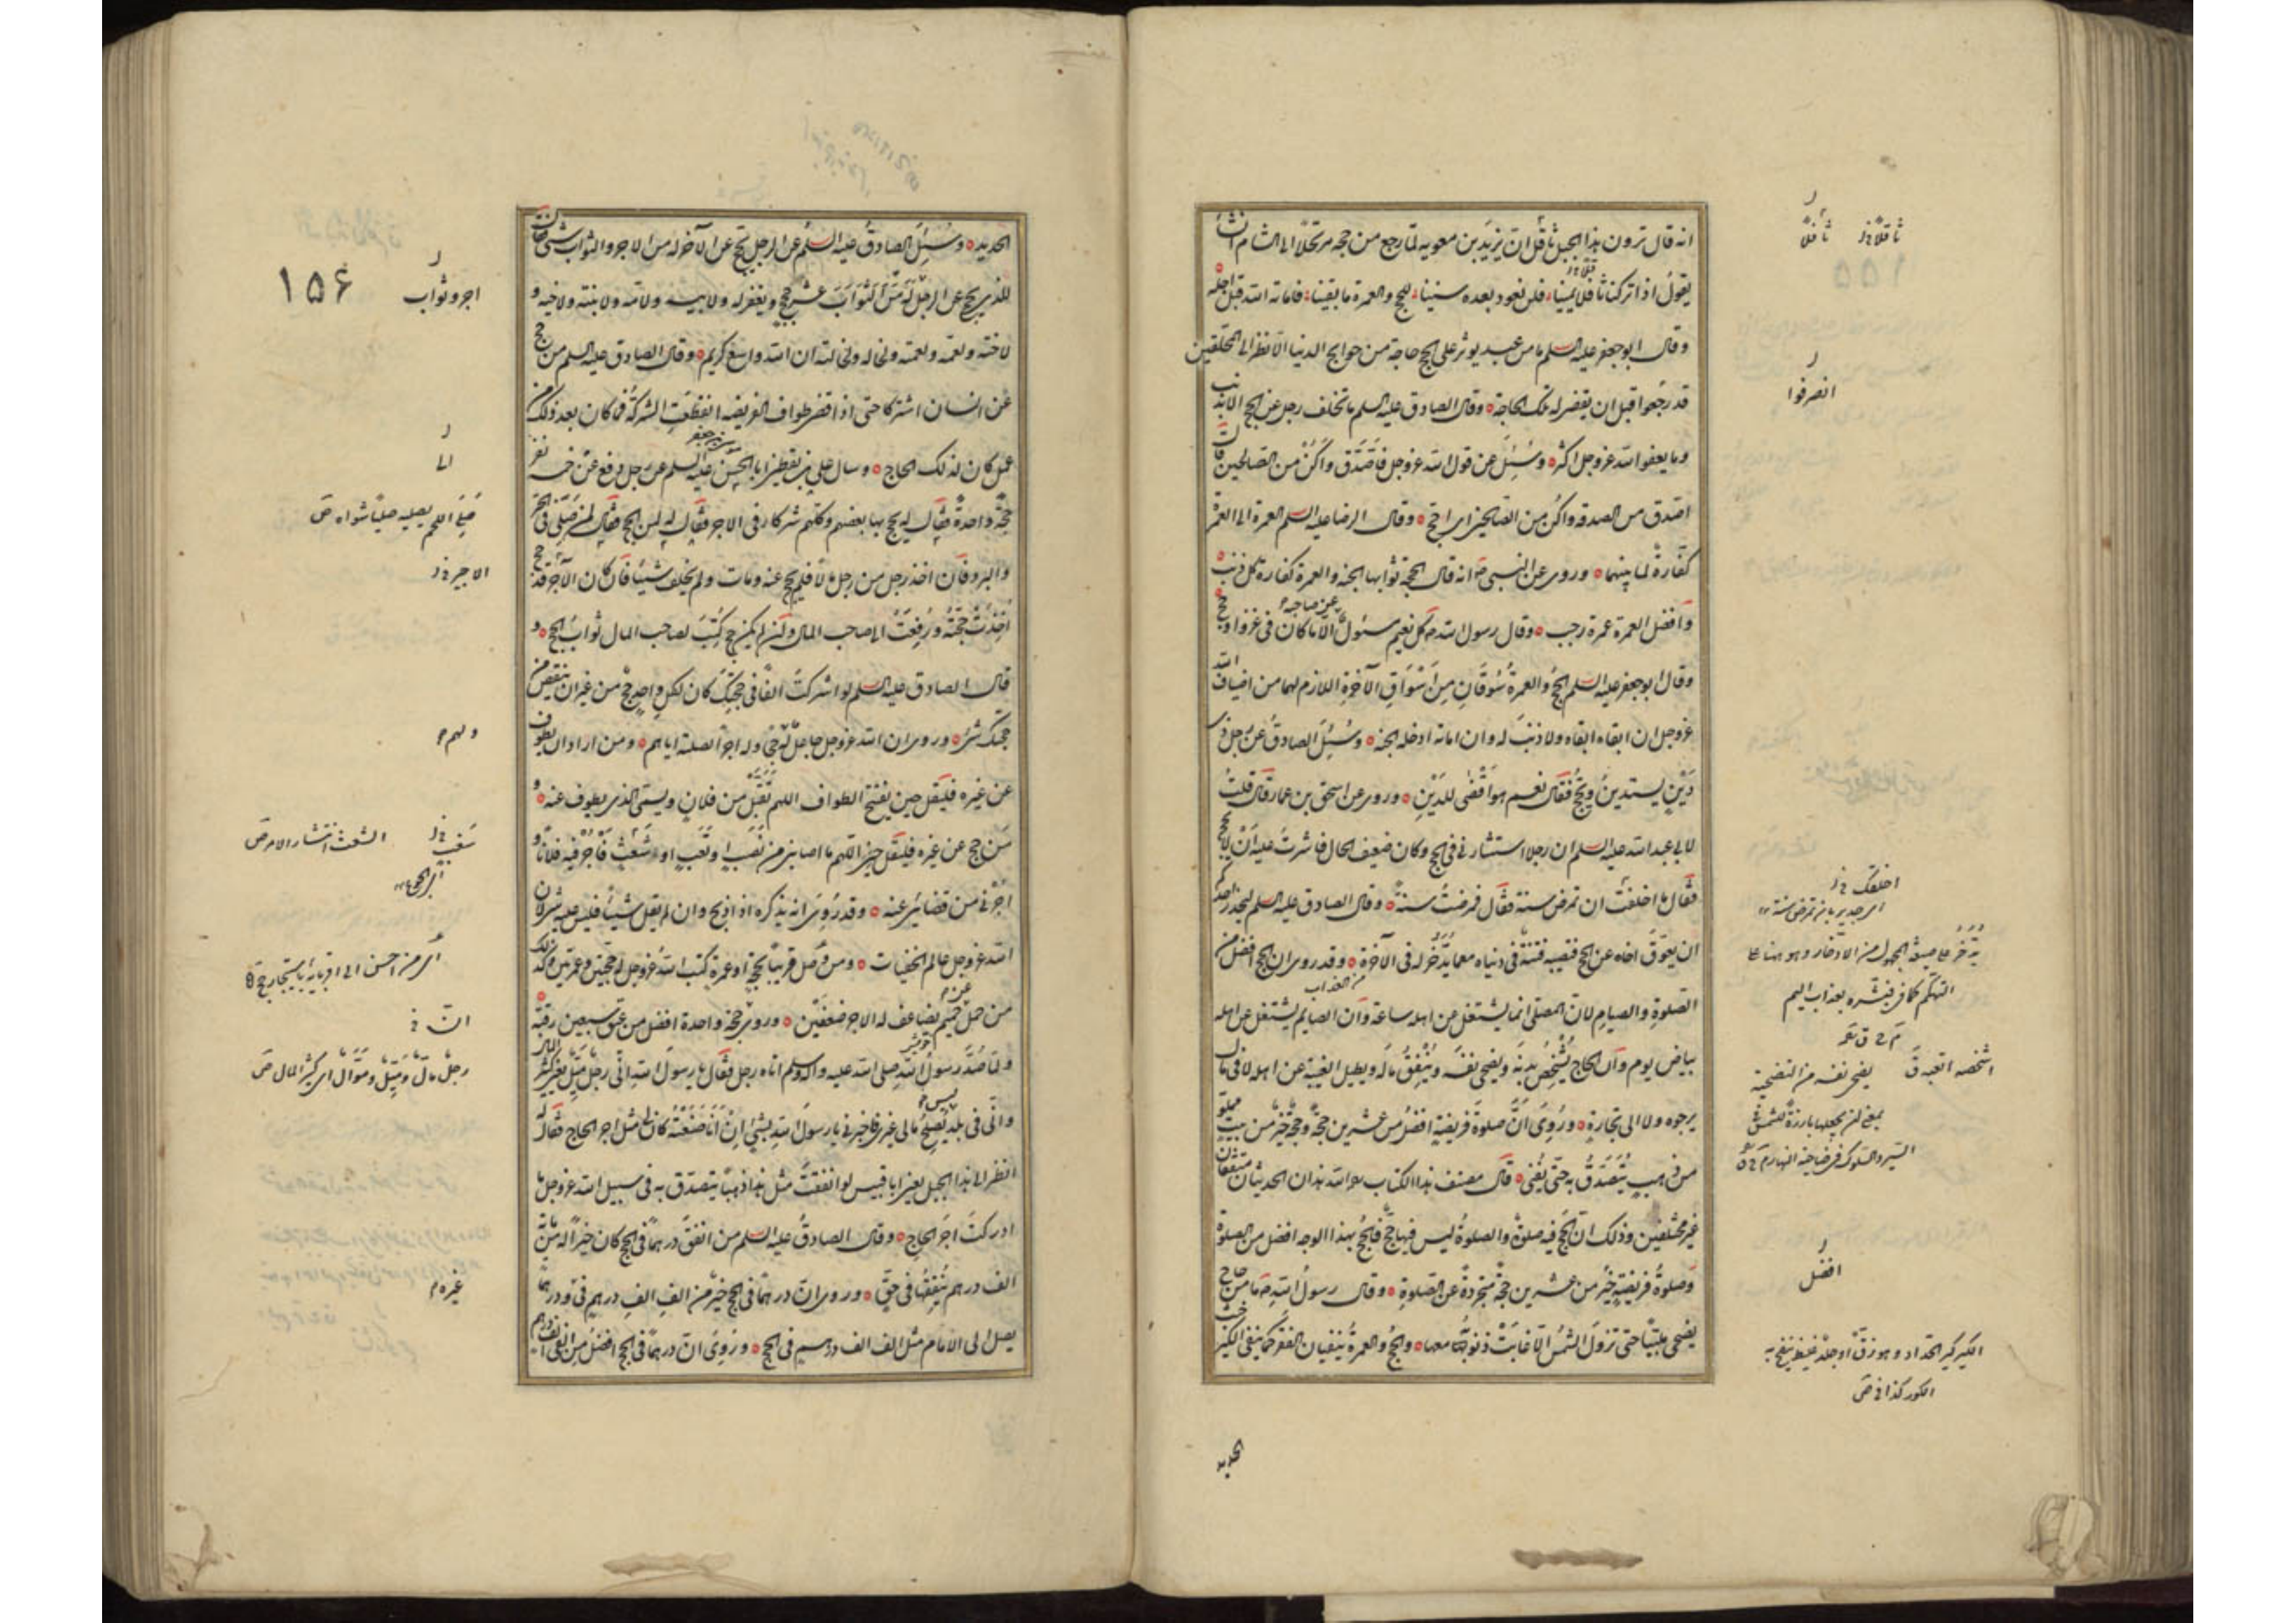 انه قال ترون هذا الجبل ثافل ان يزيد بن معويه لما رجع من حجه مرتحلا الى الشام انشأ
يقول اذا تركنا ثافلا يمينا فلن نعود بعده سنينا للحج والعمرة ما بقينا فاماته الله قبل اجله
وقال ابو جعفر عليه السلم ما من عبد يوثر على الحج حاجة من حوايج الدنيا الا نظر الى المحلقين
قد رجعوا قبل ان يقضى له تلك الحاجة وقال الصادق عليه السلم ما تخلف رجل عن الحج الا بذنب
وما يعفو الله عز وجل اكثر وسئل عن قول الله عز وجل فاصدق واكن من الصالحين قال
اصدق من الصدقه واكن من الصالحين اى احج وقال الرضا عليه السلم العمرة الى العمرة
كفارة لما بينهما وروى عن النبى ص انه قال الحجة ثوابها الجنه والعمرة كفارة كل ذنب
وافضل العمرة عمرة رجب وقال رسول الله ص كل نعيم مسئول عنه صاحبه الا ما كان فى غزو او حج
وقال ابو جعفر عليه السلم الحج والعمرة سوقان من اسواق الآخرة اللازم لهما من اضياف الله
عز وجل ان ابقاه ابقاه ولا ذنب له وان اماته ادخله الجنه وسئل الصادق عن رجل ذى
دين يستدين ويحج فقال نعم هو اقضى للدين وروى عن اسحق بن عمار قال قلت
لابى عبد الله عليه السلم ان رجلا استشارنى فى الحج وكان ضعيف الحال فاشرت عليه ان لا يحج
فقال ما اخلقك ان تمرض سنة فقال فمرضت سنة وقال الصادق عليه السلم ليحذر احدكم
ان يعوق اخاه عن الحج فتصيبه فتنة فى دنياه مع ما يدخر له فى الآخرة وقد روى ان الحج افضل من
الصلوة والصيام لان المصلى انما يشتغل عن اهله ساعة وان الصايم يشتغل عن اهله
بياض يوم وان الحاج يشخص بدنه ويضحى نفسه وينفق ماله ويطيل الغيبة عن اهله لا فى مال
يرجوه ولا الى تجارة وروى ان صلوة فريضة افضل من عشرين حجة وحجة خير من بيت مملو
من ذهب يتصدق به حتى يفنى قال مصنف هذا الكتاب ره الله هذان الحديثان متفقان
غير مختلفين وذلك ان الحج فيه صلوة والصلوة ليس فيها حج فالحج بهذا الوجه افضل من الصلوة
وصلوة فريضة خير من عشرين حجة متجردة عن الصلوة وقال رسول الله ص ما من حاج
يضحى ملبيا حتى تزول الشمس الا غابت ذنوبه معها والحج والعمرة ينفيان الفقر كما ينفى الكير خبث
الحديد
ثاقلا خ ر ثافلا
انصرفوا
اخلقك خ ر
اى جدير بان تمرض سنة
يدخر على صيغة المجهول من الادخار وهو هنا على
التهكم كما فى فبشره بعذاب اليم
اشخصه اتعبه ق
يضحى نفسه من التضحية
بمعنى ان يجعلها بارزة للشمس
افضل
الكير كير الحداد وهو زق او جلد غليظ ينفخ به
الكور كذا فى ص
الحديد وسئل الصادق عليه السلم عن الرجل يحج عن الآخر له من الاجر والثواب شىء فقال
للذى يحج عن الرجل له من الثواب عشر حجج ويغفر له ولابيه ولامه ولابنته ولاخيه و
لاخته ولعمه ولعمته ولخاله ولخالته ان الله واسع كريم وقال الصادق عليه السلم من حج
عن انسان اشتركا حتى اذا قضى طواف الفريضه انقطعت الشركة فما كان بعد ذلك من
عمل كان لذلك الحاج وسال على بن يقطين ابا الحسن موسى بن جعفر عليه السلم عن رجل دفع عن خمسة نفر
حجة واحدة فقال له يحج بها بعضهم وكلهم شركاء فى الاجر فقال له لمن الحج فقال لمن صلى فى الحر
والبرد فان اخذ رجل من رجل مالا فلم يحج عنه ومات ولم يخلف شيئا فان كان الآجر قد حج
اخذت حجته ودفعت الى صاحب المال وان لم يكن حج كتب لصاحب المال ثواب الحج و
قال الصادق عليه السلم لو اشركت الفا فى حجتك كان لكل واحد حج من غير ان ينقص من
حجتك شىء وروى ان الله عز وجل جاعل له حجا وله اجر الصلته اياهم ومن اراد ان يطوف
عن غيره فليقل حين يفتتح الطواف اللهم تقبل من فلان ويسمى الذى يطوف عنه و
من حج عن غيره فليقل اللهم ما اصابنى من نصب او تعب او شعث فأجر فيه فلانا و
اجرنى من قضائى عنه وقد روى انه يذكره اذا ذبح وان لم يقل شيئا فليس عليه شىء لان
الله عز وجل عالم الخفيات ومن وصل قريبا بحجة او عمرة كتب الله عز وجل له حجتين وعمرتين وكذلك
من حمل عن حميم يضاعف له الاجر ضعفين وروى حجة واحدة افضل من عتق سبعين رقبة
ولما صد رسول الله صلى الله عليه وآله وسلم اتاه رجل فقال يا رسول الله انى رجل ميل يعنى كثير المال
وانى فى بلد ليس يصلح مالى غيرى فاخبرنى يا رسول الله بشىء ان انا صنعته كان لى مثل اجر الحاج فقال له
انظر الى هذا الجبل يعنى ابا قبيس لو انفقت مثل هذا ذهبا يتصدق به فى سبيل الله عز وجل ما
ادركت اجر الحاج وقال الصادق عليه السلم من انفق درهما فى الحج كان خيرا له من مائة
الف درهم ينفقها فى حق وروى ان درهما فى الحج خير من الف الف درهم فى غيره ودرهما
يصل الى الامام مثل الف الف درهم فى الحج وروى ان درهما فى الحج افضل من الفى الف درهم
١٥۶
اجر وثواب
الى
صلى اللحم يصليه صليا شواه ص
الاجير خ ر
ولهم
الشعث انتشار الامر ص
رجل مال وميل ومول اى كثير المال ص
غيره م